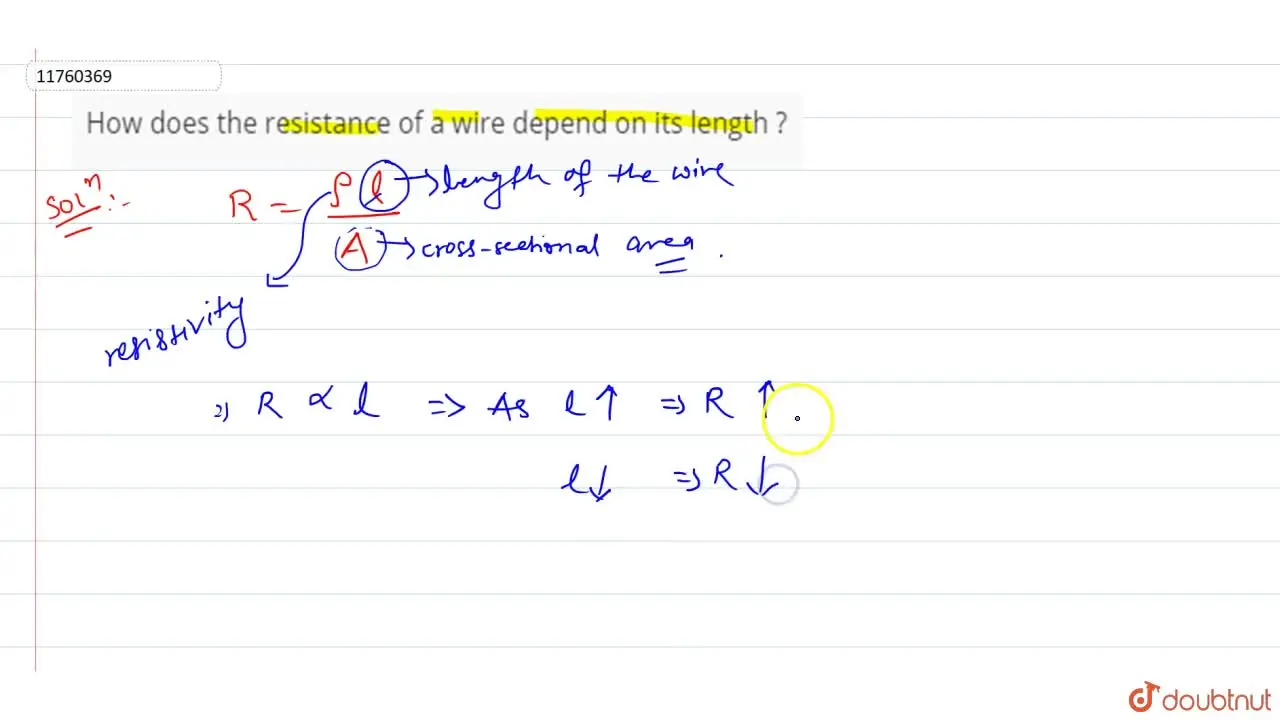 11760369
How does the resistance of a wire depend on its length ?
Solⁿ:-
R = ρl → length of the wire
A → cross-sectional area .
resistivity
⇒ R ∝ l ⇒ As l ↑ ⇒ R ↑
l ↓ ⇒ R ↓
doubtnut